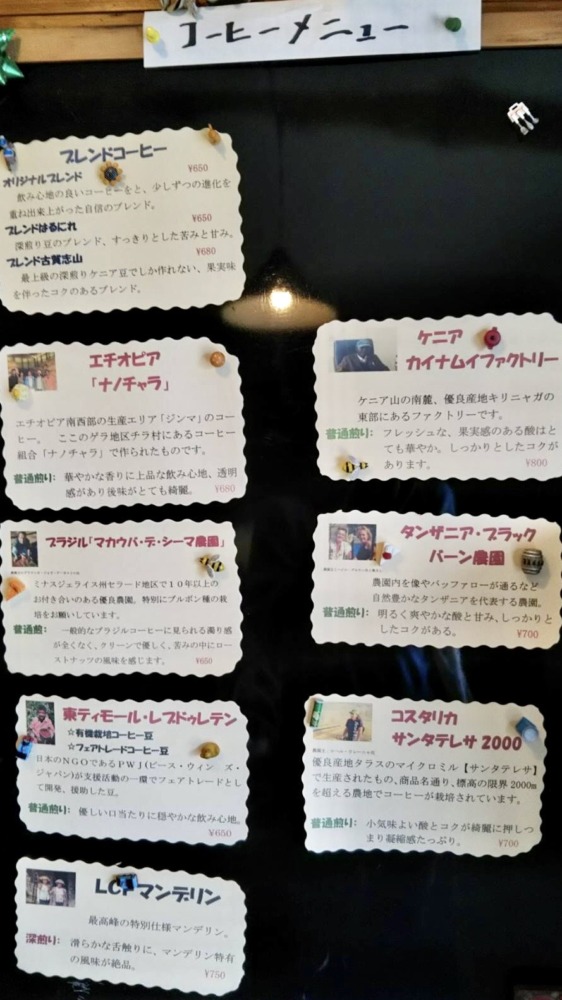 コーヒーメニュー
ブレンドコーヒー
オリジナルブレンド ¥650
飲み心地の良いコーヒーをと、少しずつの進化を
重ね出来上がった自信のブレンド。
ブレンドはるにれ ¥650
深煎り豆のブレンド、すっきりとした苦みと甘み。
ブレンド古賀志山 ¥680
最上級の深煎りケニア豆でしか作れない、果実味
を伴ったコクのあるブレンド。
エチオピア
「ナノチャラ」
エチオピア南西部の生産エリア「ジンマ」のコー
ヒー。 ここのゲラ地区チラ村にあるコーヒー
組合「ナノチャラ」で作られたものです。
普通煎り: 華やかな香りに上品な飲み心地、透明
感があり後味がとても綺麗。 ¥650
ブラジル「マカウバ・デ・シーマ農園」
ミナスジェライス州セラード地区で10年以上の
お付き合いのある優良農園。特別にブルボン種の栽
培をお願いしています。
普通煎: 一般的なブラジルコーヒーに見られる濁り感
が全くなく、クリーンで優しく、苦みの中にロー
ストナッツの風味を感じます。 ¥650
東ティモール・レブドゥレテン
☆有機栽培コーヒー豆
☆フェアトレードコーヒー豆
日本のNGOであるPWJ(ピース・ウィン ズ・
ジャパン)が支援活動の一環でフェアトレードとし
て開発、援助した豆。
普通煎り: 優しい口当たりに穏やかな飲み心地。
¥650
LCFマンデリン
最高峰の特別仕様マンデリン。
深煎り: 滑らかな舌触りに、マンデリン特有
の風味が絶品。 ¥750
ケニア
カイナムイファクトリー
ケニア山の南麓、優良産地キリニャガの
東部にあるファクトリーです。
普通煎り: フレッシュな、果実感のある酸はと
ても華やか。しっかりとしたコクが
あります。 ¥800
タンザニア・ブラック
バーン農園
農園内を像やバッファローが通るなど
自然豊かなタンザニアを代表する農園。
普通煎り: 明るく爽やかな酸と甘み、しっかりと
したコクがある。 ¥700
コスタリカ
サンタテレサ 2000
優良産地タラスのマイクロミル【サンタテレサ】
で生産されたもの、商品名通り、標高の限界2000m
を超える農地でコーヒーが栽培されています。
普通煎り: 小気味よい酸とコクが綺麗に押しつ
まり凝縮感たっぷり。 ¥700